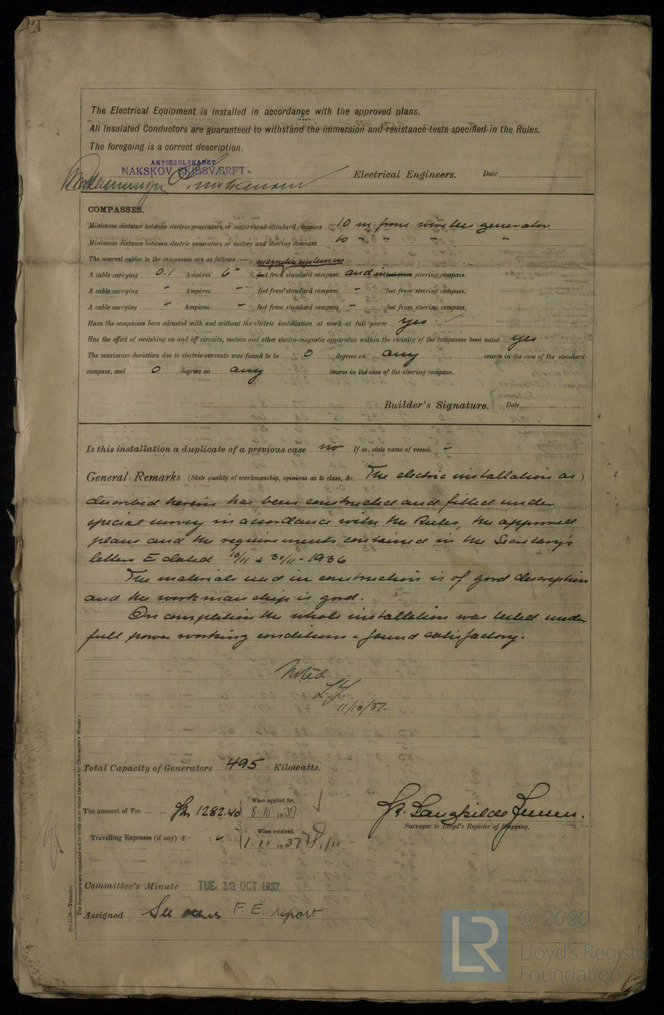 The Electrical Equipment is installed in accordance with the approved plans.
All Insulated Conductors are guaranteed to withstand the immersion and resistance tests specified in the Rules.
The foregoing is a correct description.
AKTIESELSKABET
NAKSKOV SKIBSVÆRFT.
Electrical Engineers. Date
COMPASSES.
Minimum distance between electric generators or motors and standard compass 10 m from wireless generator
Minimum distance between electric generators or motors and steering compass 10 " " " "
The nearest cables to the compasses are as follows:—
A cable carrying 0.1 Ampères 6" feet from standard compass and steering compass.
A cable carrying " Ampères " feet from standard compass " feet from steering compass.
A cable carrying " Ampères " feet from standard compass " feet from steering compass.
Have the compasses been adjusted with and without the electric installation at work at full power yes
Has the effect of switching on and off circuits, motors and other electro-magnetic apparatus within the vicinity of the compasses been noted yes
The maximum deviation due to electric currents was found to be 0 degrees on any course in the case of the standard
compass, and 0 degrees on any course in the case of the steering compass.
Builder's Signature. Date
Is this installation a duplicate of a previous case no If so, state name of vessel "
General Remarks (State quality of workmanship, opinions as to class, &c. The electric installation as)
described herein has been constructed and fitted under
special survey in accordance with the Rules, the approved
plans and the requirements contained in the Secretary's
letters E dated 10/11 & 30/11 - 1936
The materials used in construction is of good description
and the workmanship is good.
On completion the whole installation was tested under
full power working conditions - found satisfactory.
Noted
11/10/37.
Total Capacity of Generators 495 Kilowatts.
The amount of Fee ... ... Kr 1282.40
When applied for,
8.10.1937
Travelling Expenses (if any) £ "
When received,
1.11.1937
Surveyor to Lloyd's Register of Shipping.
Committee's Minute TUE 12 OCT 1937
Assigned See other F.E. report
(The Surveyors are requested not to write on or below the space for Committee's Minute.)
© 2020
LR
Lloyd's Register
Foundation